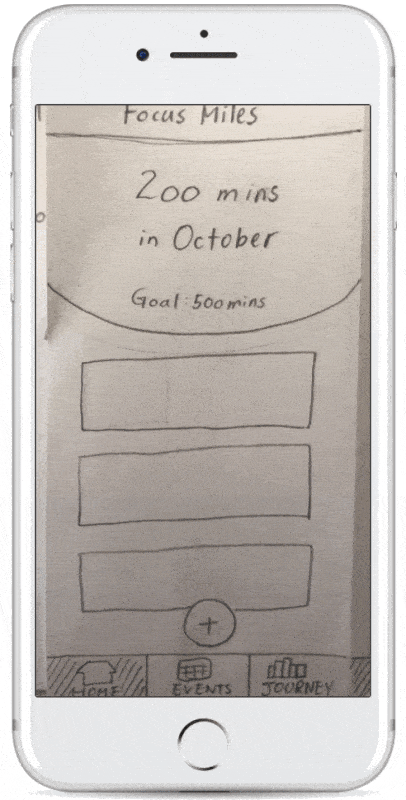 Focus Miles
200 mins
in October
Goal: 500 mins
+
HOME
EVENTS
JOURNEY